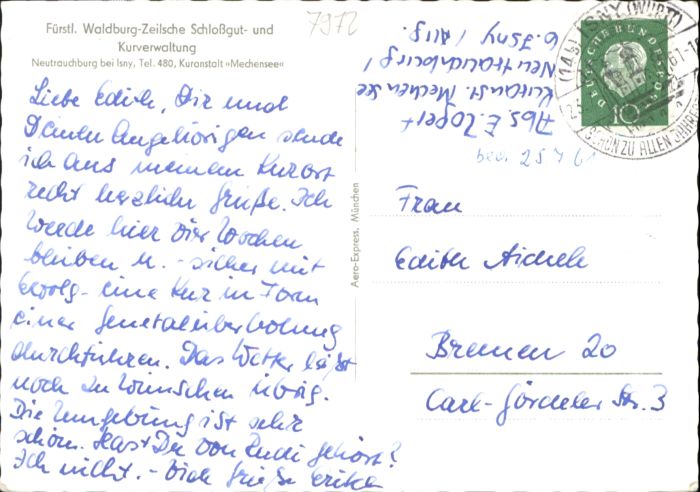 Fürstl. Waldburg-Zeilsche Schloßgut- und
Kurverwaltung
Neutrauchburg bei Isny, Tel. 480, Kuranstalt »Mechensee«
7972
Liebe Edith, Dir und
Deinen Angehörigen sende
ich aus meinem Kurort
recht herzliche Grüße. Ich
werde hier vier Wochen
bleiben u. - sicher mit
Erfolg - eine Kur in Form
einer Generalüberholung
durchführen. Das Wetter läßt
noch zu wünschen übrig.
Die Umgebung ist sehr
schön. Hast Du von Rudi gehört?
Ich nicht. - Viele Grüße Erika
Aero-Express, München
Abs. E.
Kuranst. Mechensee
Neutrauchburg /
b. Isny / Allg.
25 4 61
ISNY (WÜRTT)
SCHÖN ZU ALLEN JAHRE
DEUTSCHE BUNDESPOST
10
Frau
Edith Aichele
Bremen 20
Carl-Gördeler Str. 3